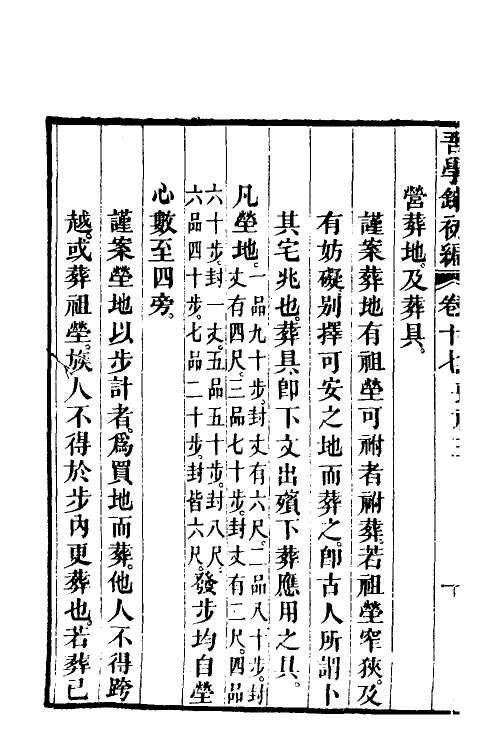 吾學錄初編 卷十七
營葬地。及葬具。
謹案葬地有祖塋可祔者祔葬。若祖塋窄狹。及
有妨礙。別擇可安之地而葬之。卽古人所謂卜
其宅兆也。葬具卽下文出殯下葬應用之具。
凡塋地。一品九十步。封丈有六尺。二品八十步。封
丈有四尺。三品七十步。封丈有二尺。四品
六十步。封一丈。五品五十步。封八尺。
六品四十步。七品二十步。封皆六尺。發步均自塋
心數至四旁。
謹案塋地以步計者。爲買地而葬。他人不得跨
越。或葬祖塋。族人不得於步內更葬也。若葬已